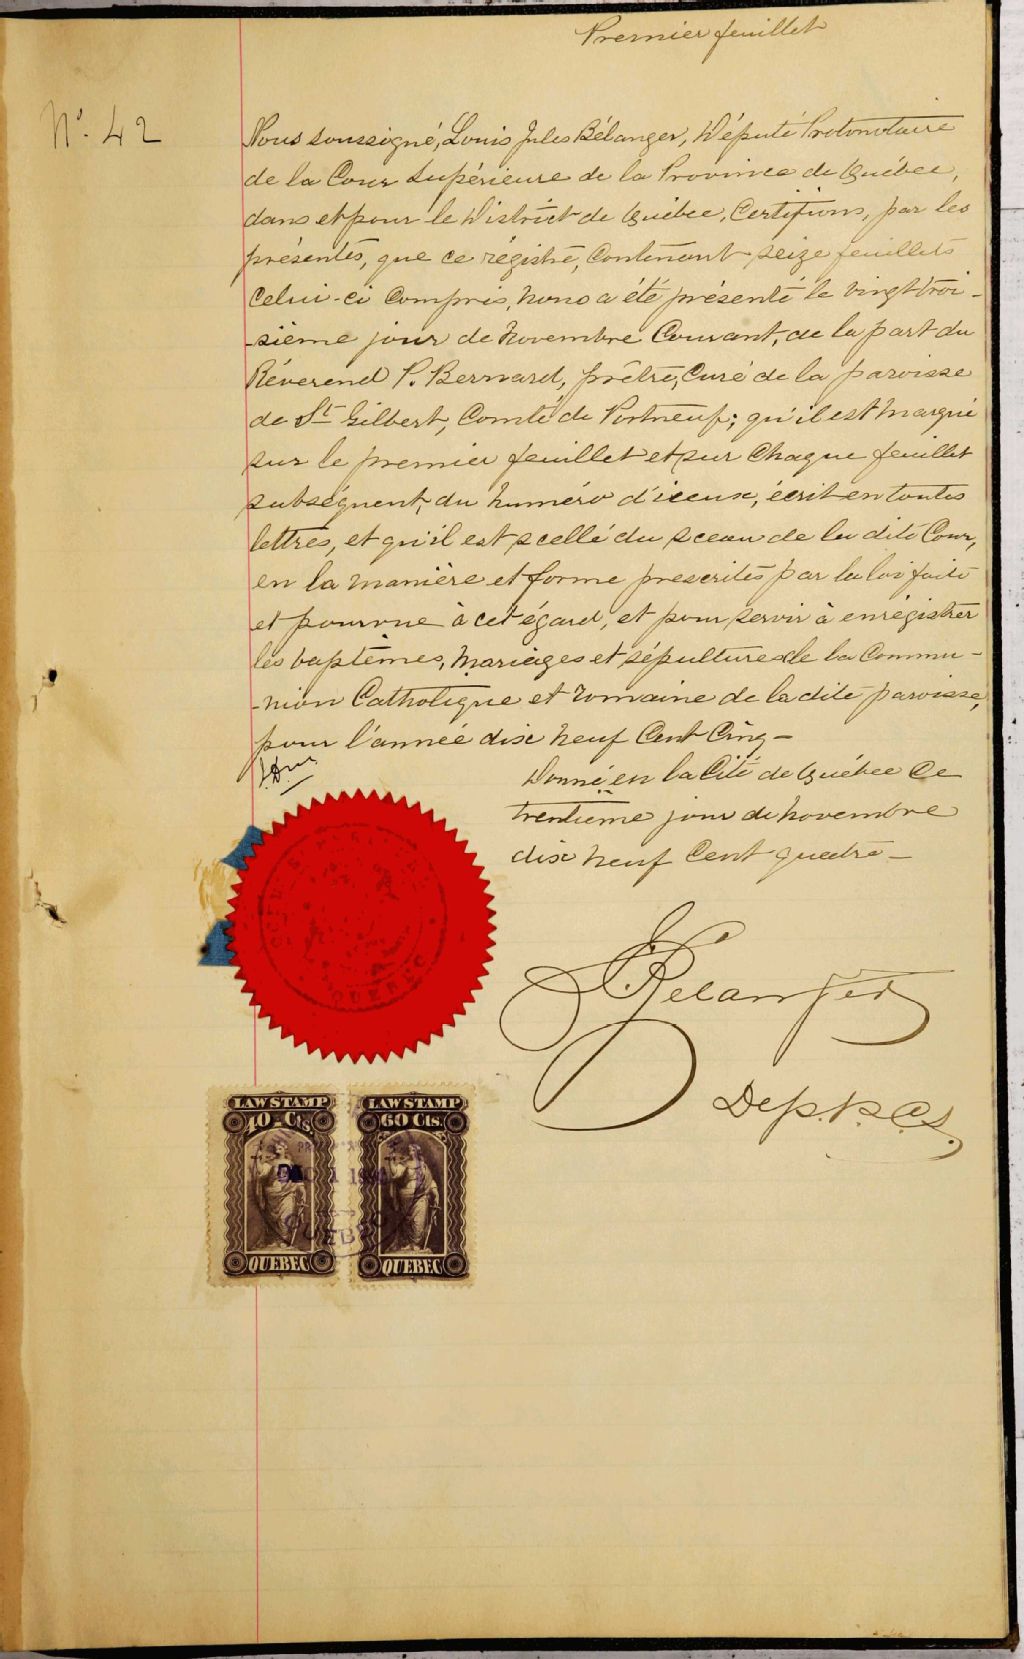 Premier feuillet
No. 42
Nous soussigné, Louis Jules Bélanger, Député Protonotaire
de la Cour Supérieure de la Province de Québec,
dans et pour le District de Québec, Certifions, par les
présentes, que ce régistre, Contenant seize feuillets
Celui-ci Compris, nous a été présenté le vingt troi-
-sième jour de Novembre Courant, de la part du
Révérend P. Bernard, prêtre, Curé de la paroisse
de St Gilbert, Comté de Portneuf; qu'il est marqué
sur le premier feuillet et sur Chaque feuillet
subséquent, du numéro d'iceux, écrit en toutes
lettres, et qu'il est scellé du sceau de la dite Cour,
en la manière et forme prescrites par la loi faite
et pourvue à cet égard, et pour servir à enrégistrer
les baptêmes, Mariages et sépultures de la Commu-
-nion Catholique et romaine de la dite paroisse,
pour l'année dix neuf Cent Cinq-
Donné en la Cité de Québec Ce
trentième jour de novembre
dix neuf Cent quatre-
QUEBEC
Belanger
Dep. P. C. S.
LAW STAMP
40 Cts.
QUEBEC
LAW STAMP
60 Cts.
QUEBEC
QUEBEC